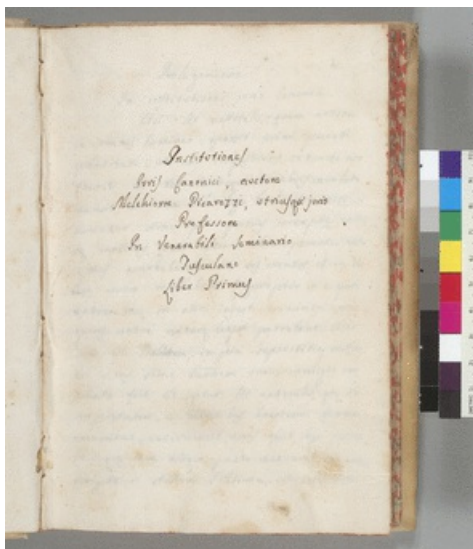 Institutiones
Juris Canonici, auctore
Melchiorre Picarozzi, utriusque juris
Professore
In Venerabili Seminario
Tusculano
Liber Primus